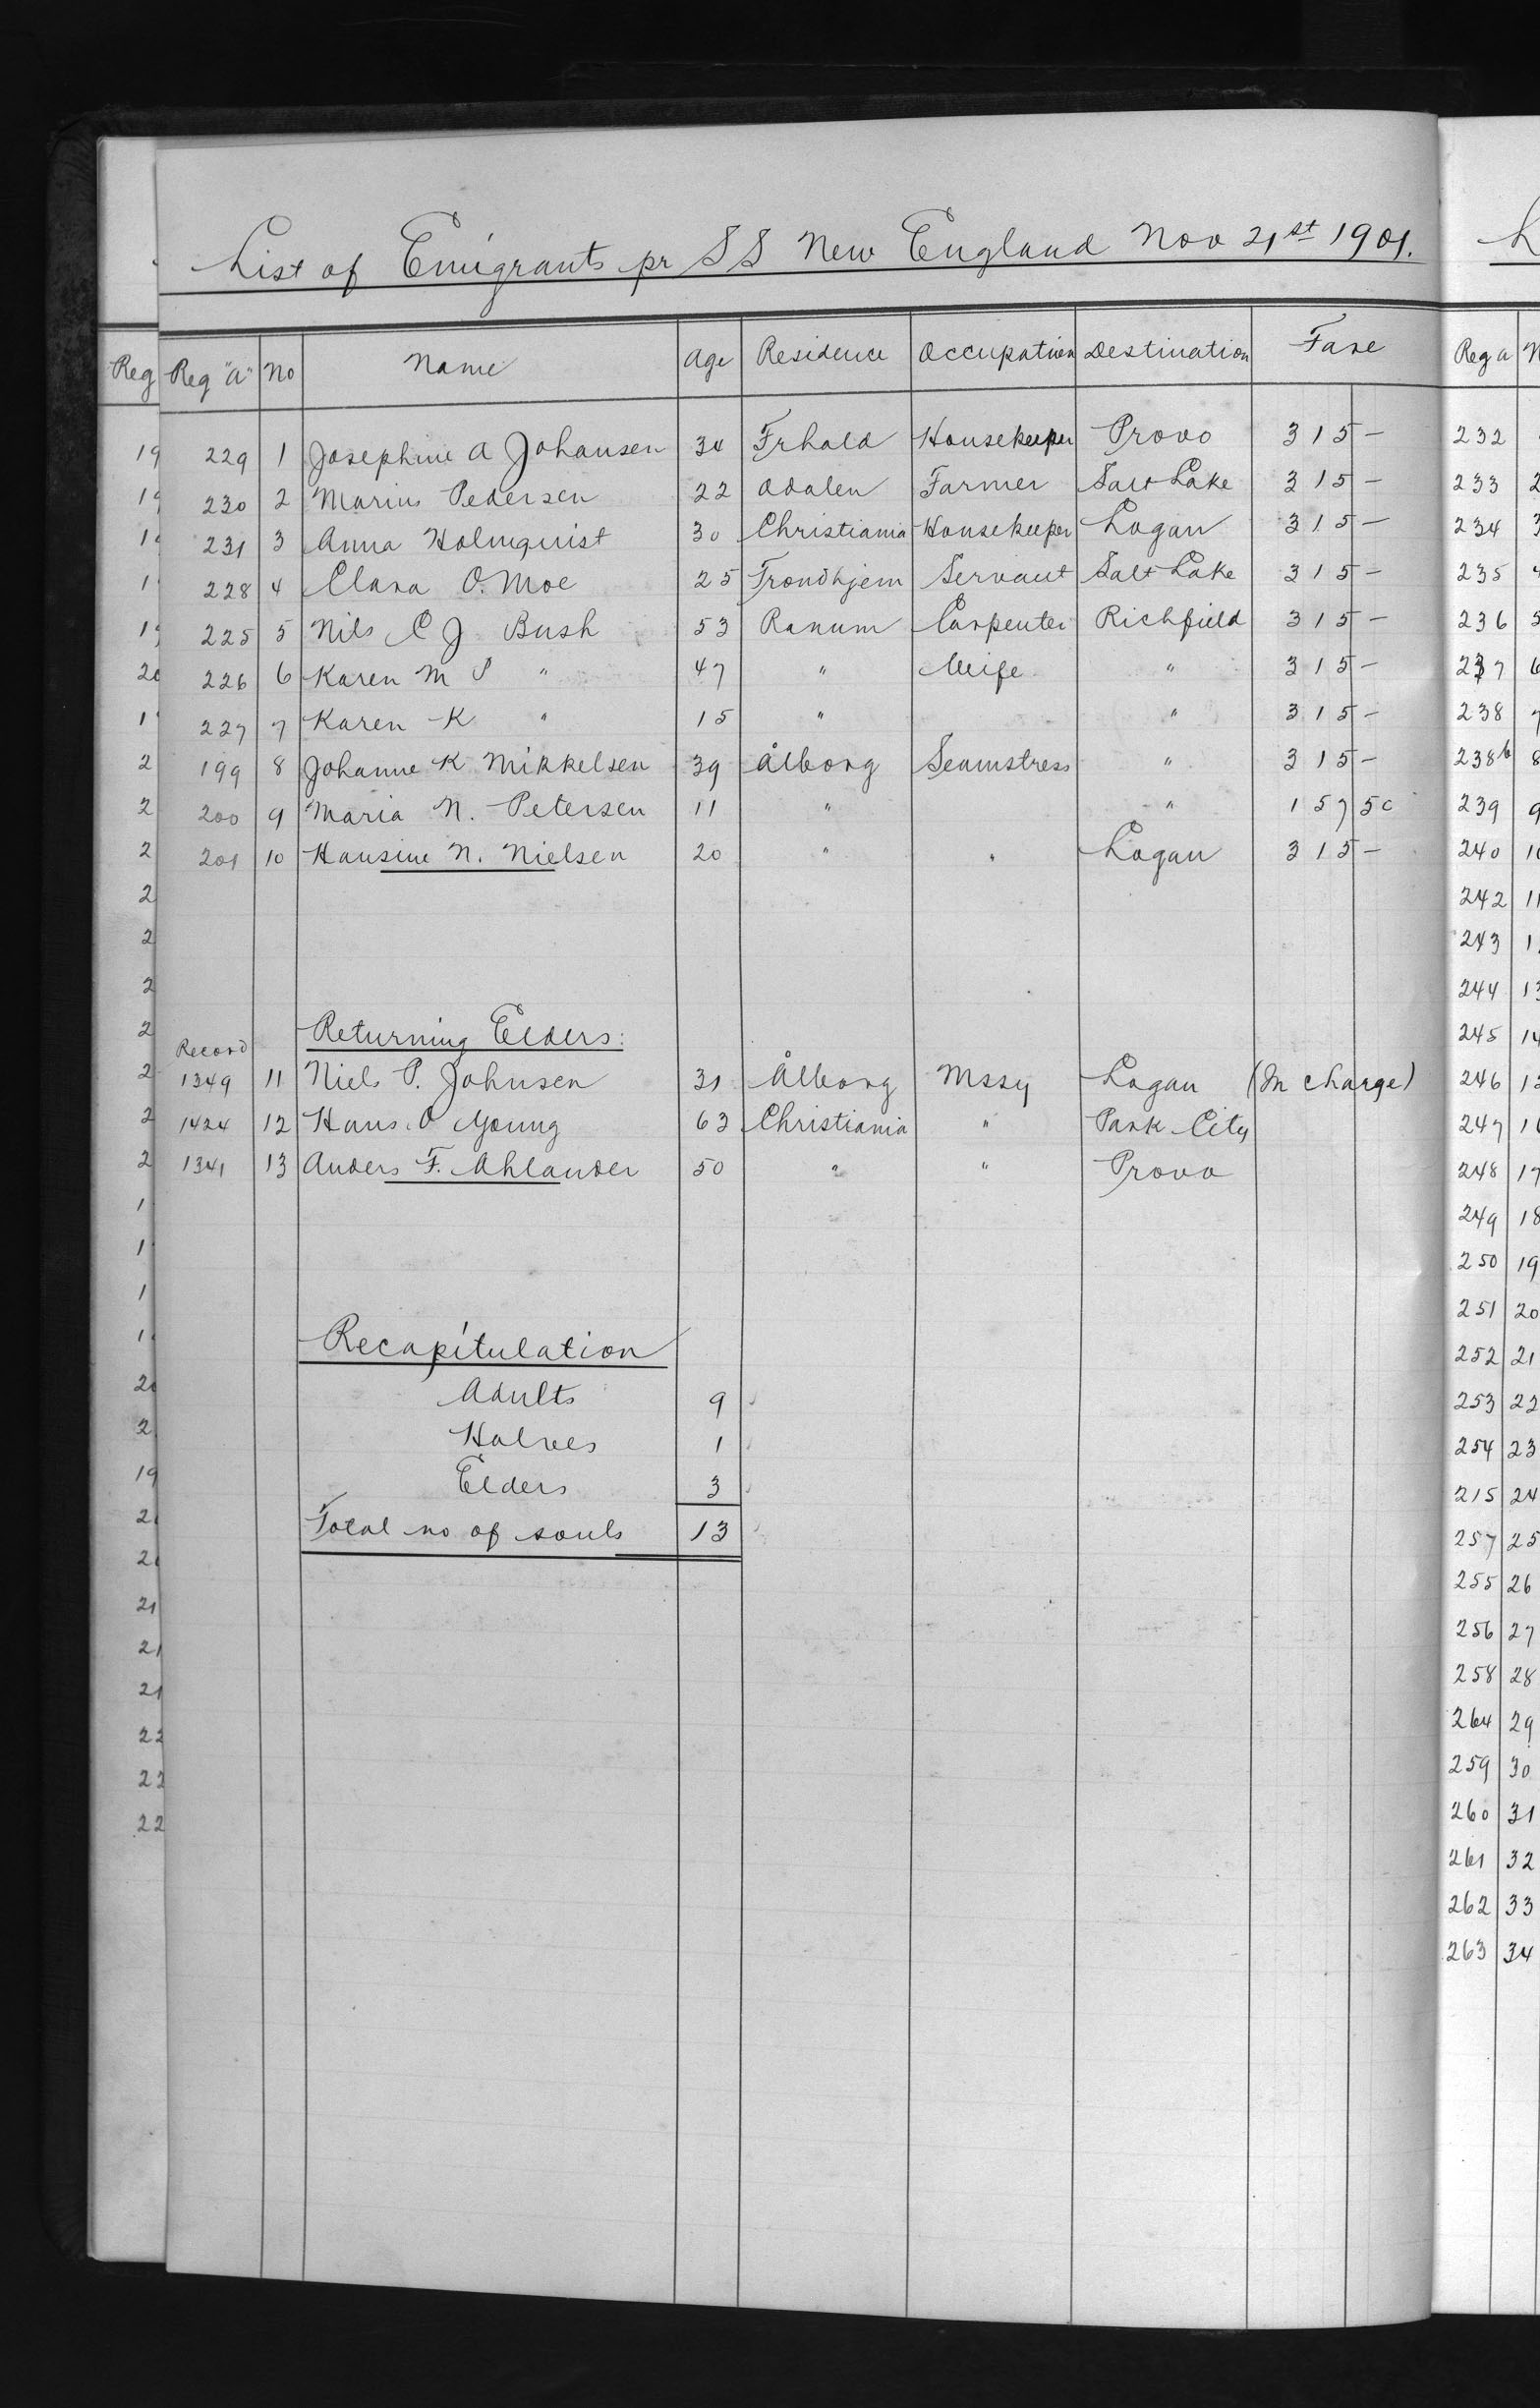 List of Emigrants pr S S New England Nov 21st 1901.
Reg "a" No Name Age Residence Occupation Destination Fare
229 1 Josephine A Johansen 34 Frhald Housekeeper Provo 315 —
230 2 Marius Pedersen 22 Odalen Farmer Salt Lake 315 —
231 3 Anna Holmquist 30 Christiania Housekeeper Logan 315 —
228 4 Clara O. Moe 25 Trondhjem Servant Salt Lake 315 —
225 5 Nils C J Bush 53 Ranum Carpenter Richfield 315 —
226 6 Karen M S " 47 " Wife " 315 —
227 7 Karen K " 15 " " 315 —
199 8 Johanne K Mikkelsen 39 Ålborg Seamstress " 315 —
200 9 Maria N. Petersen 11 " " 157 50
201 10 Hansine N. Nielsen 20 " " Logan 315 —
Returning Elders:
Record
1349 11 Niels P. Johnsen 31 Ålborg Mssy Logan (In charge)
1424 12 Hans O Young 63 Christiania " Park City
1341 13 Anders F. Ahlander 50 " " Provo
Recapitulation
Adults 9
Halves 1
Elders 3
Total no of souls 13
Reg a
232
233 2
234 3
235 4
236 5
237 6
238 7
238b 8
239 9
240 10
242 11
243
244 13
245 14
246
247
248 17
249 18
250 19
251 20
252 21
253 22
254 23
215 24
257 25
255 26
256 27
258 28
264 29
259 30
260 31
261 32
262 33
263 34